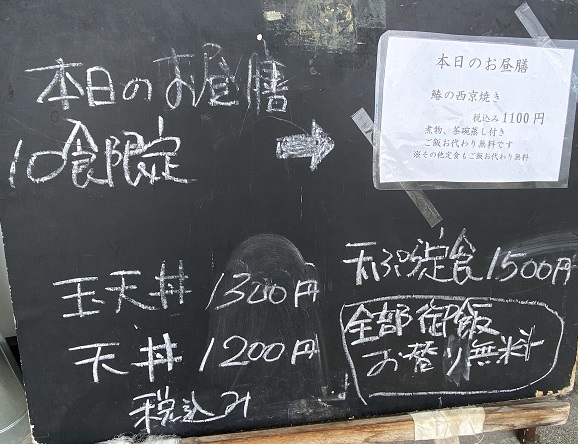 本日のお昼膳
10食限定
➡
本日のお昼膳
鰆の西京焼き
税込み1100円
煮物、茶碗蒸し付き
ご飯お代わり無料です
※その他定食もご飯お代わり無料
玉天丼 1300円
天丼 1200円
税込み
天ぷら定食1500円
全部御飯
お替り無料